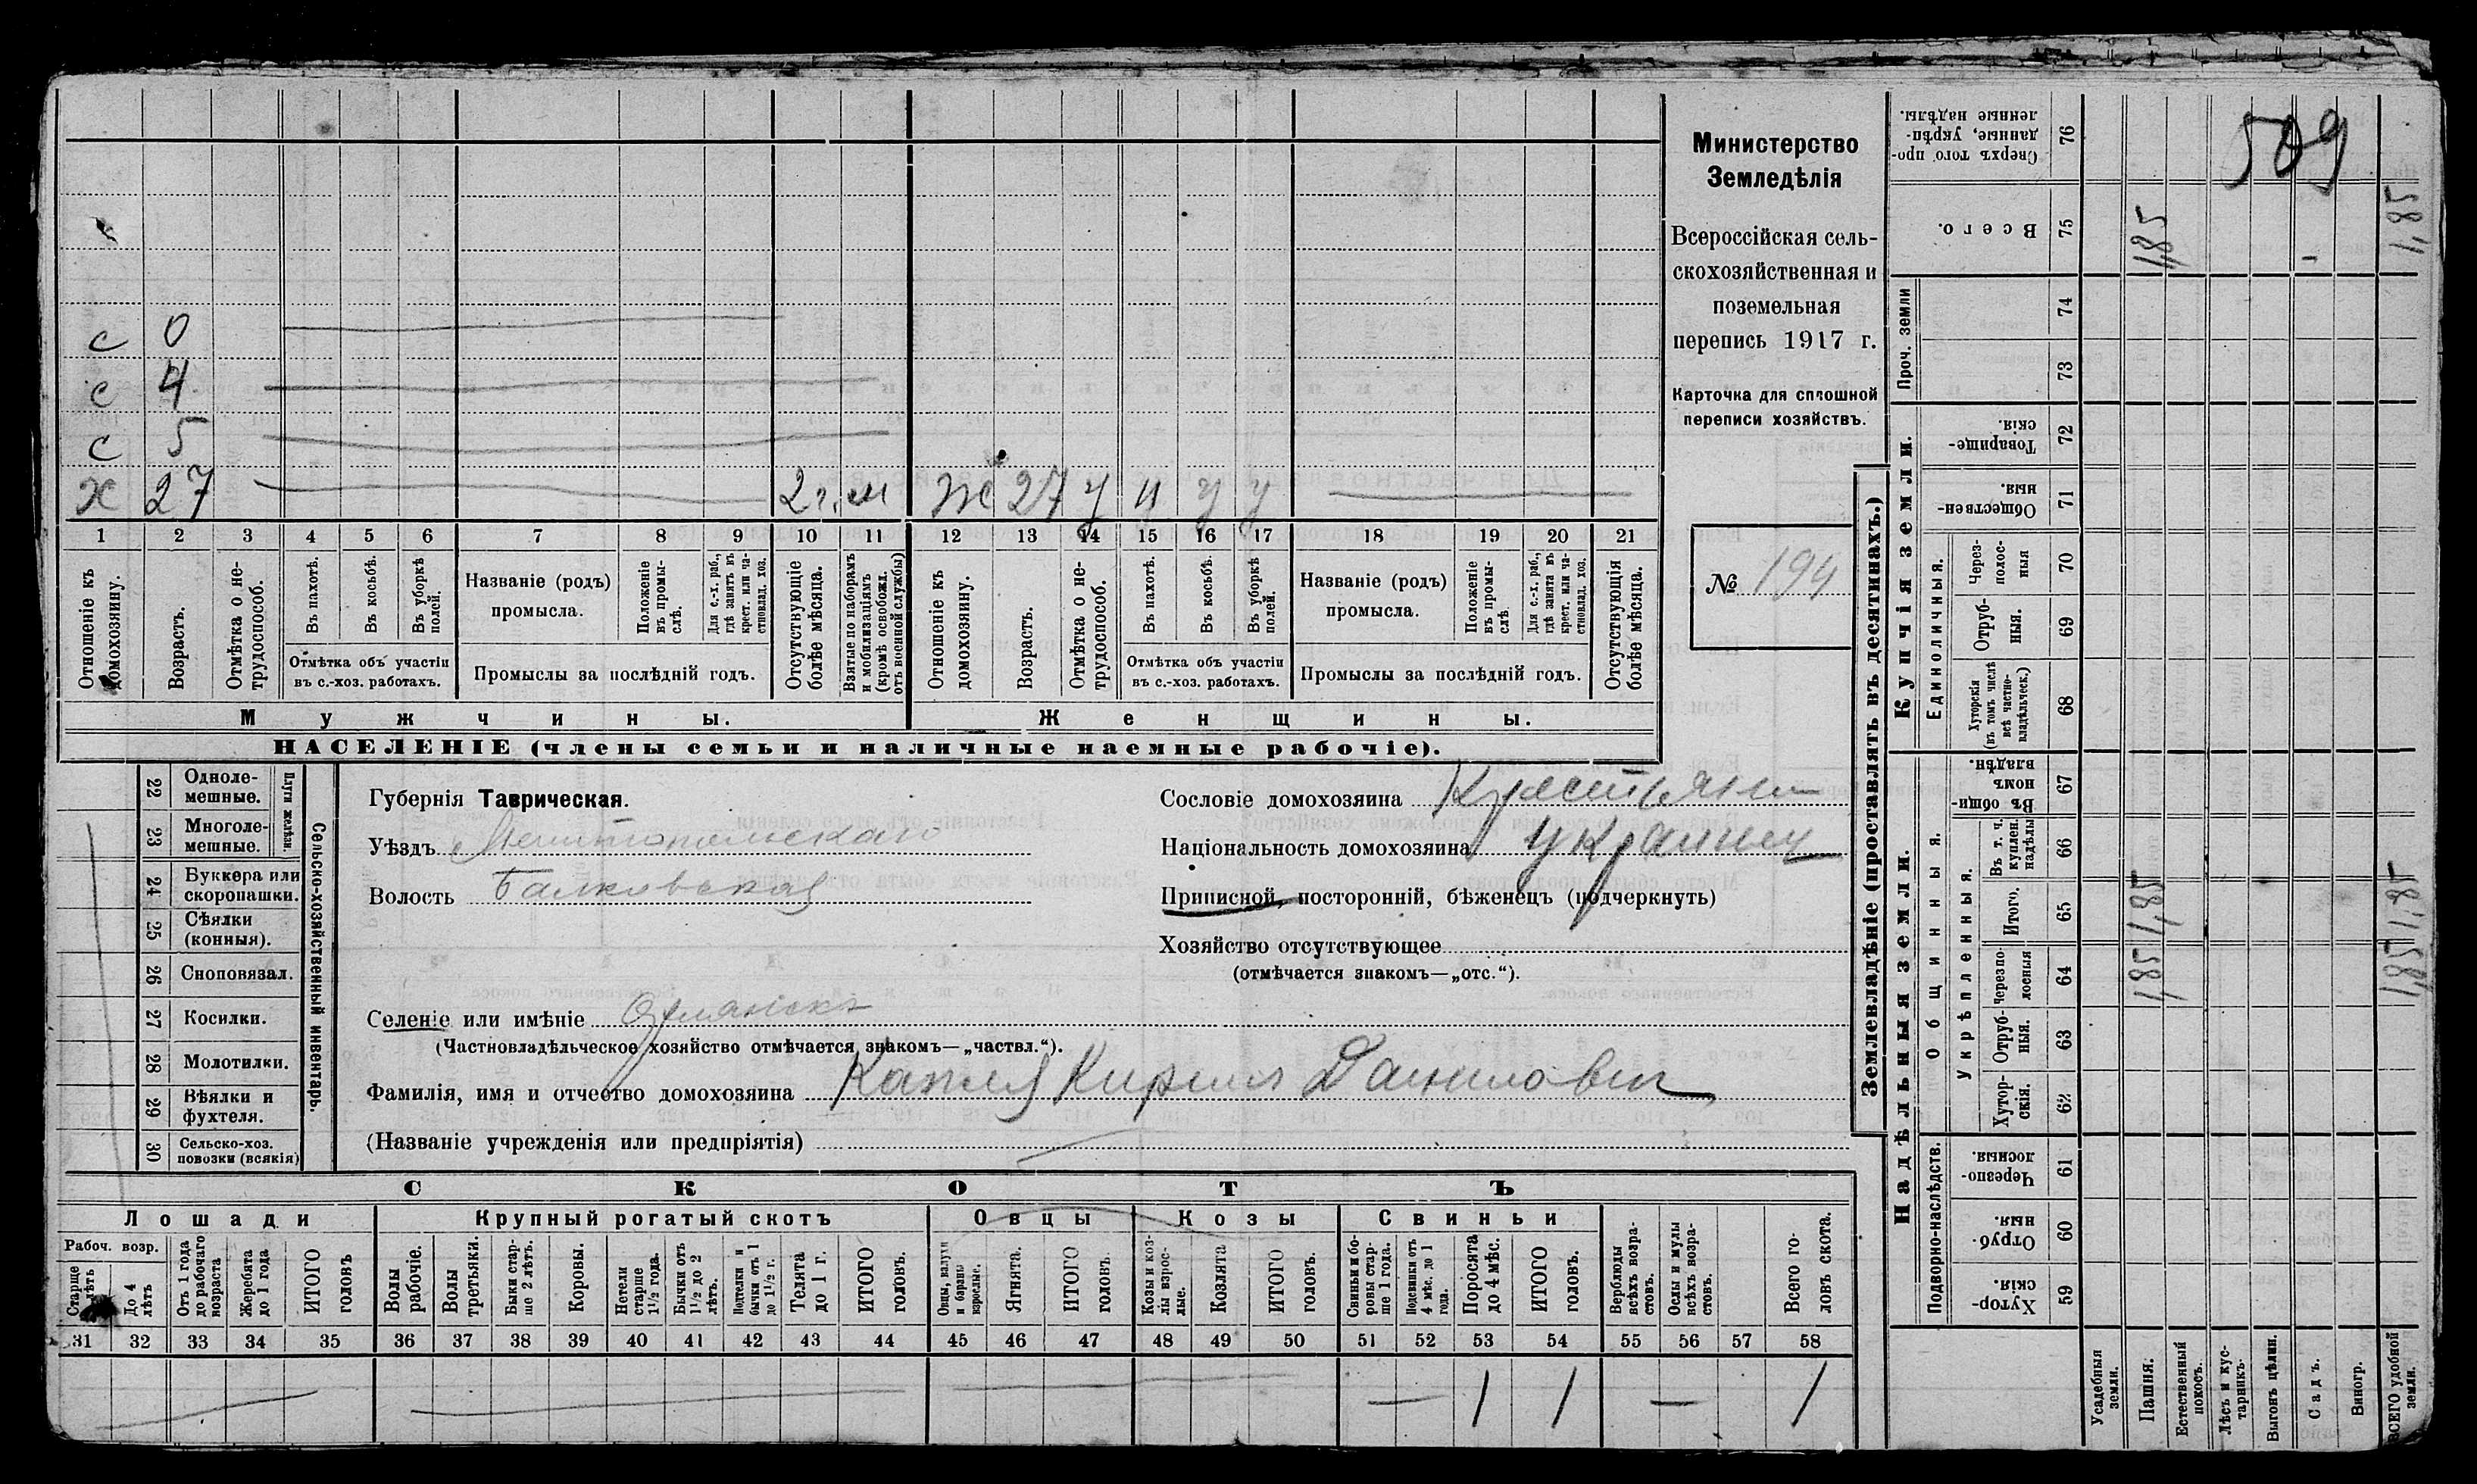 509
Министерство
Земледѣлія
Всероссійская сель-
скохозяйственная и
поземельная
перепись 1917 г.
Карточка для сплошной
переписи хозяйствъ.
№ 194
с 0
с 4
с 5
х 27 2 г. м ж 27 у у у у
1 2 3 4 5 6 7 8 9 10 11 12 13 14 15 16 17 18 19 20 21
Отношеніе къ домохозяину.
Возрастъ.
Отмѣтка о не-трудоспособ.
Въ пахотѣ.
Въ косьбѣ.
Въ уборкѣ полей.
Отмѣтка объ участіи
въ с.-хоз. работахъ.
Названіе (родъ)
промысла.
Положеніе въ промы-слѣ.
Для с.-х. раб., гдѣ занятъ въ крест. или ча-стновлад. хоз.
Промыслы за послѣдній годъ.
Отсутствующіе болѣе мѣсяца.
Взятые по наборамъ и мобилизаціямъ (кромѣ освобожд. отъ военной службы)
Отношеніе къ домохозяину.
Возрастъ.
Отмѣтка о не-трудоспособ.
Въ пахотѣ.
Въ косьбѣ.
Въ уборкѣ полей.
Отмѣтка объ участіи
въ с.-хоз. работахъ.
Названіе (родъ)
промысла.
Положеніе въ промы-слѣ
Для с.-х. раб., гдѣ занята въ крест. или ча-стновлад. хоз.
Промыслы за послѣдній годъ.
Отсутствующія болѣе мѣсяца.
Мужчины.
Женщины.
НАСЕЛЕНІЕ (члены семьи и наличные наемные рабочіе).
22 Одноле-мешные.
23 Многоле-мешные.
Плуги желѣзн.
24 Буккера или скоропашки.
25 Сѣялки (конныя).
26 Сноповязал.
27 Косилки.
28 Молотилки.
29 Вѣялки и фухтеля.
30 Сельско-хоз. повозки (всякія)
Сельско-хозяйственный инвентарь.
Губернія Таврическая.
Уѣздъ Мелитопольскаго
Волость Балковская
Сословіе домохозяина Крестьянин
Національность домохозяина украинец
Приписной, посторонній, бѣженецъ (подчеркнуть)
Хозяйство отсутствующее
(отмѣчается знакомъ—„отс.“).
Селеніе или имѣніе
(Частновладѣльческое хозяйство отмѣчается знакомъ—„частвл.“).
Фамилія, имя и отчество домохозяина Капля Кирилл Данилович
(Названіе учрежденія или предпріятія)
СКОТЪ
Лошади
Рабоч. возр.
Старше 4 лѣтъ
До 4 лѣтъ
Отъ 1 года до рабочаго возраста
Жеребята до 1 года
ИТОГО головъ
Крупный рогатый скотъ
Волы рабочіе.
Волы третьяки.
Быки стар-ше 2 лѣтъ.
Коровы.
Нетели старше 1½ года.
Бычки отъ 1½ до 2 лѣтъ.
Подтелки и бычки отъ 1 до 1½ г.
Телята до 1 г.
ИТОГО головъ.
Овцы
Овцы, валухи и бараны взрослые.
Ягнята.
ИТОГО головъ.
Козы
Козы и коз-лы взрос-лые.
Козлята
ИТОГО головъ.
Свиньи
Свиньи и бо-ровы стар-ше 1 года.
Подсвинки отъ 4 мѣс. до 1 года.
Поросята до 4 мѣс.
ИТОГО головъ.
Верблюды всѣхъ возра-стовъ.
Ослы и мулы всѣхъ возра-стовъ.
Всего го-ловъ скота.
31 32 33 34 35 36 37 38 39 40 41 42 43 44 45 46 47 48 49 50 51 52 53 54 55 56 57 58
— 1 1 — 1
Землевладѣніе (проставлять въ десятинахъ.)
Сверхъ того про-данные, укрѣп-ленные надѣлы. 76
Всего. 75 1,85 1,85
Проч. земли
74
73
Купчія земли.
Товарище-скія. 72
Обществен-ныя. 71
Единоличныя.
Через-полос-ныя 70
Отруб-ныя. 69
Хуторскія (въ томъ числѣ всѣ частно-владѣльческ.) 68
Надѣльныя земли.
Общинныя.
Въ общи-номъ владѣн. 67
Укрѣпленныя.
Въ т. ч. куплен. надѣлы 66
Итого. 65 1,85 1,85
Черезпо-лосныя 64 1,85 1,85
Отруб-ныя. 63
Хутор-скія. 62
Подворно-наслѣдств.
Черезпо-лосныя. 61
Отруб-ныя. 60
Хутор-скія. 59
Усадебныя земли.
Пашня.
Естественный покосъ.
Лѣсъ и кус-тарникъ.
Выгонъ цѣлин.
Садъ.
Виногр.
ВСЕГО удобной земли.